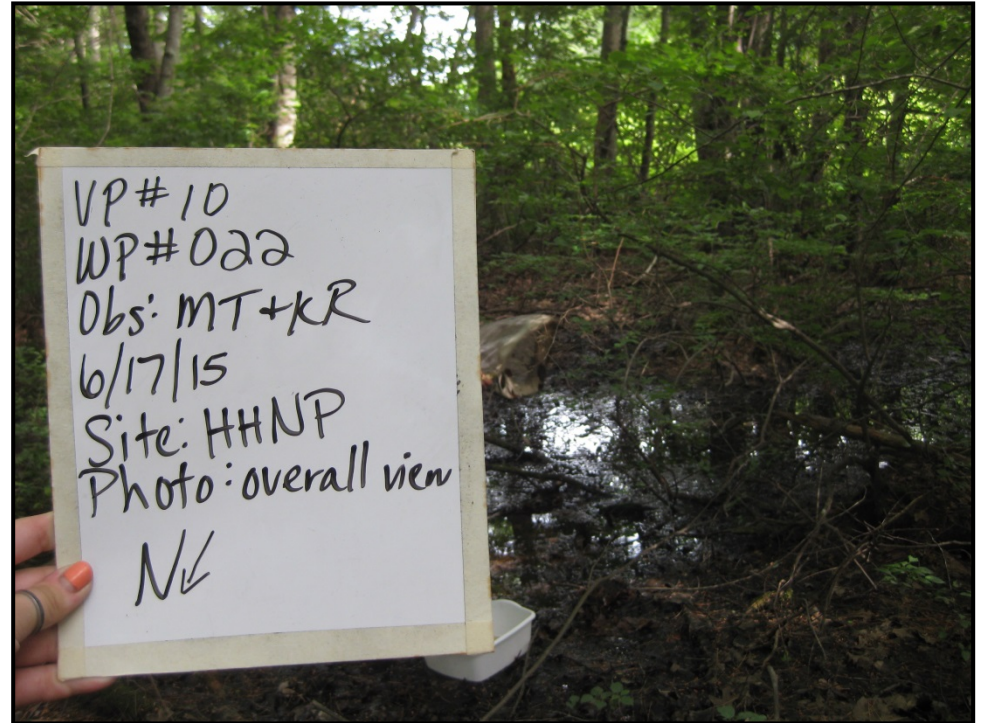 VP#10
WP#022
Obs: MT+KR
6/17/15
Site: HHNP
Photo: overall view
N↙